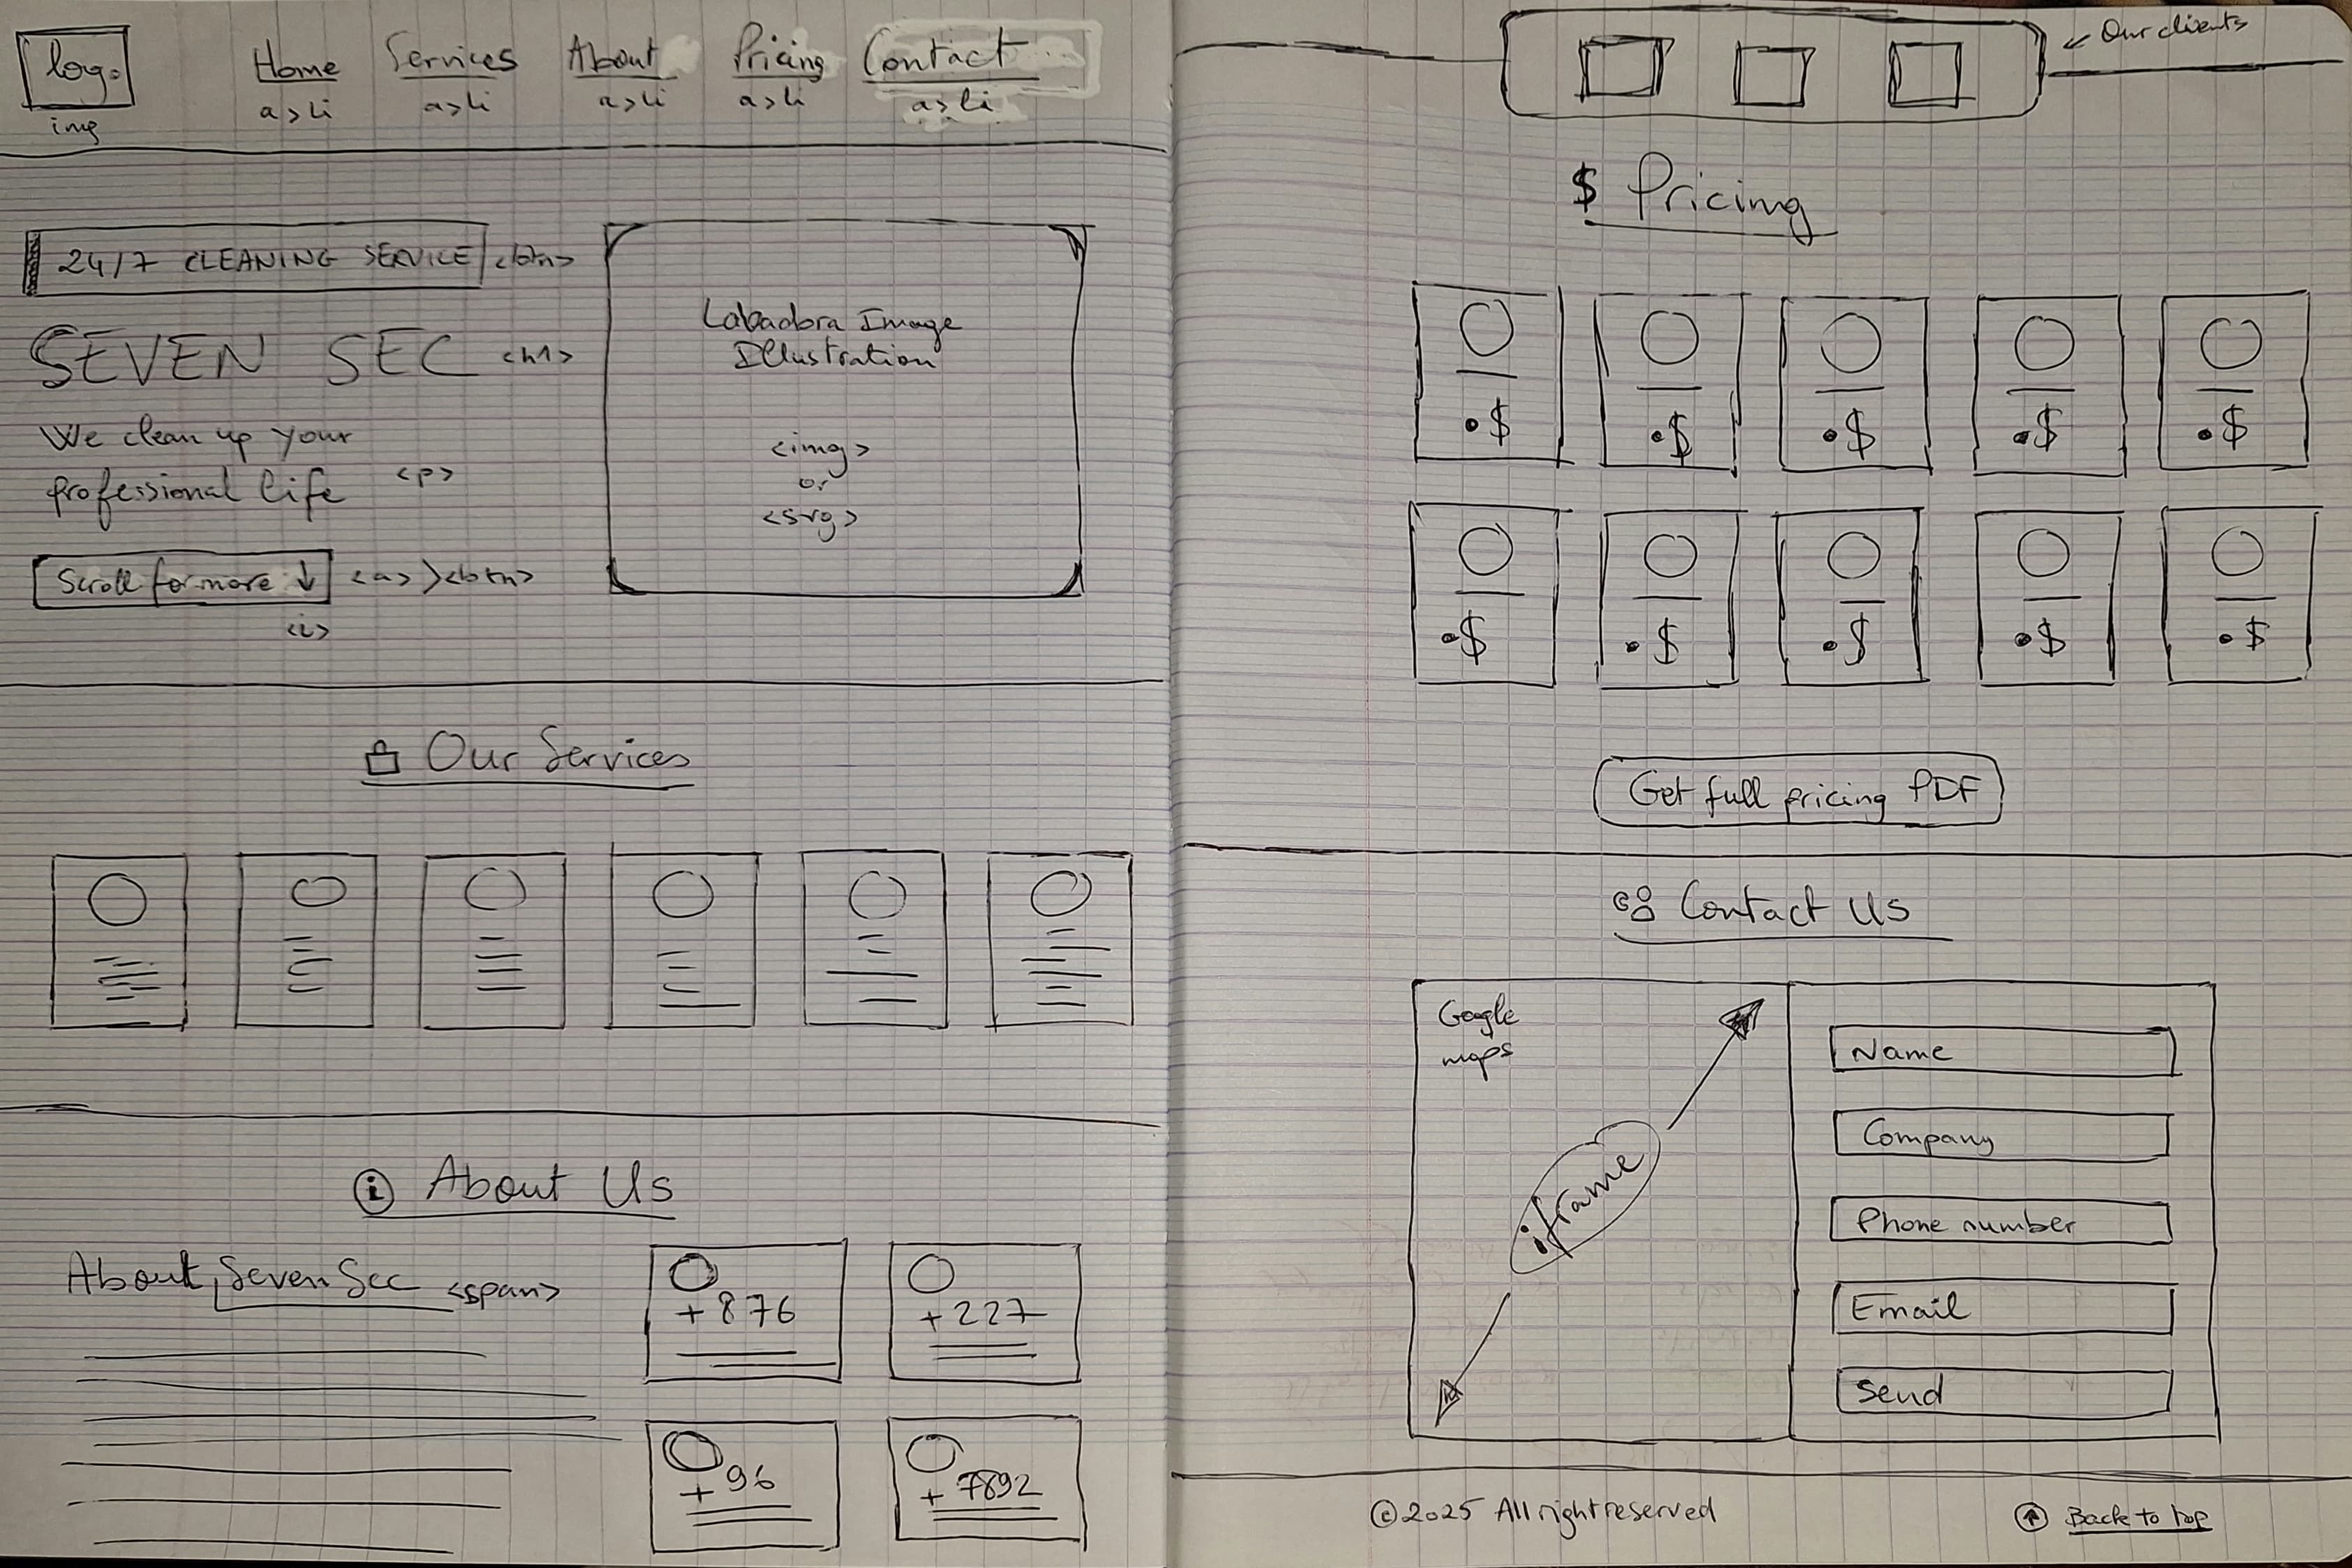 logo
img
Home
Services
About
Pricing
Contact
a>li
a>li
a>li
a>li
a>li
24/7 CLEANING SERVICE <btn>
SEVEN SEC <h1>
We clean up your
professional life <p>
Scroll for more ↓ <a> ><btn>
<i>
Labadora Image
Illustration
<img>
or
<svg>
Our Services
i About Us
About SevenSec <span>
+876
+227
+96
+7892
← Our clients
$ Pricing
•$
•$
•$
•$
•$
•$
•$
•$
•$
•$
Get full pricing PDF
Contact Us
Google
maps
iframe
Name
Company
Phone number
Email
Send
©2025 All right reserved
Back to top